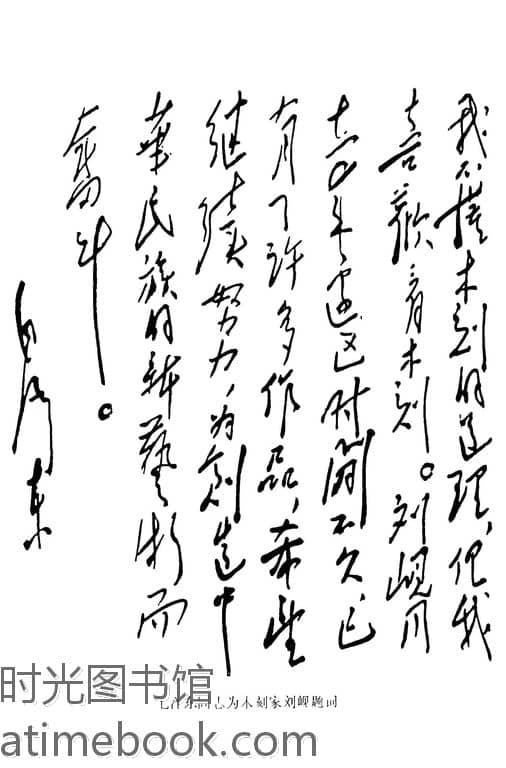 我不懂木刻的道理，但我
喜歡看木刻。刘峴同
志来边区时間不久，已
有了許多作品，希望
继續努力，为創造中
華民族的新藝術而
奮斗。
毛泽東
毛泽东同志为木刻家刘岘题词
时光图书馆
atimebook.com